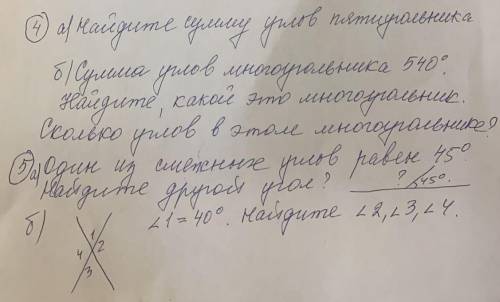 ④ а) Найдите сумму углов пятиугольника
б) Сумма углов многоугольника 540°.
Найдите, какой это многоугольник.
Сколько углов в этом многоугольнике?
⑤ а) Один из смежных углов равен 45°
Найдите другой угол? ? 45°.
б) ∠1 = 40°. Найдите ∠2, ∠3, ∠4.
1
4 2
3